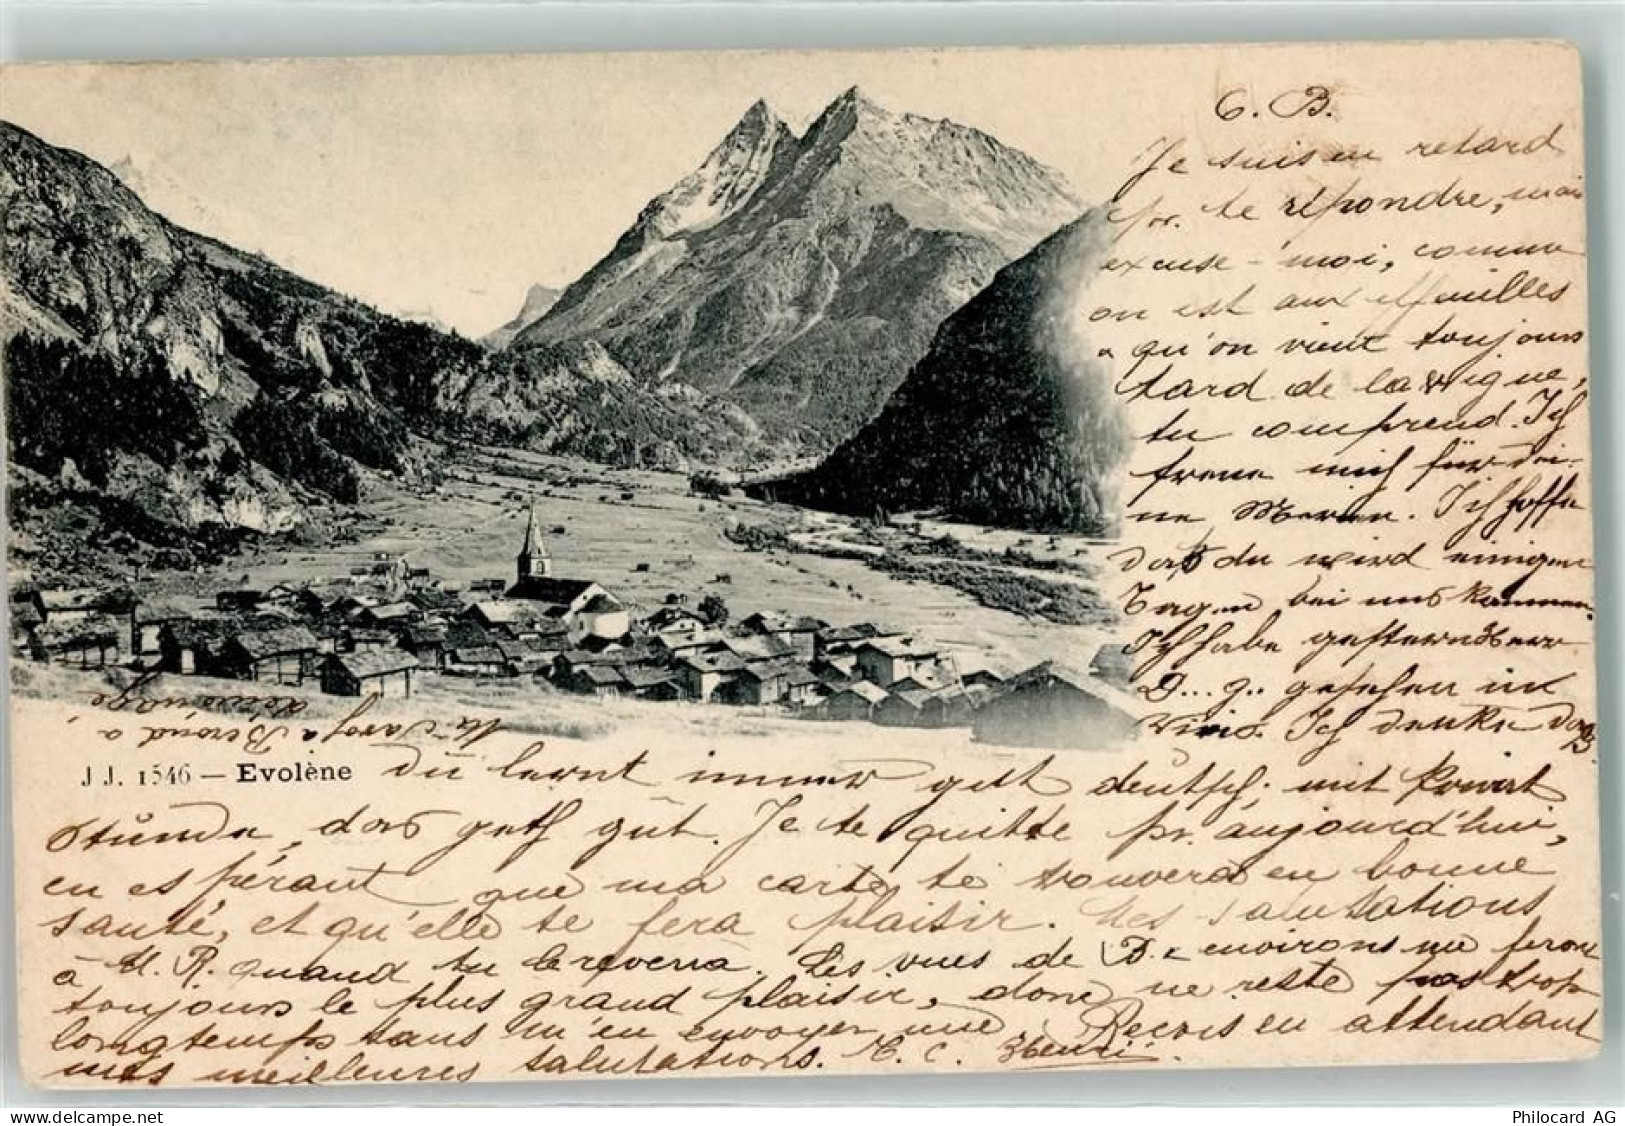 C. B.
Je suis en retard
pr. te répondre, mais
excuse-moi, comme
on est aux effeuilles
qu'on vient toujours
tard de la vigne,
tu comprend. Ich
freue mich für dei-
ne Ich hoffe
daß du wird einigen
Tagen bei uns kommen.
Ich habe gestern Herr
D... g.. gesehen in
Vivis. Ich denke das
J J. 1546 — Evolène du lernt immer gut deutsch; mit Privat
stunde, das geth gut. Je te quitte pr. aujourd'hui,
en espérant que ma carte te trouvera en bonne
santé, et qu'elle te fera plaisir. Mes salutations
à M. R. quand tu le reverra. Les vues de B. & environs me feront
toujours le plus grand plaisir, donc ne reste pas trop
longtemps sans m'en envoyer une. Reçois en attendant
mes meilleures salutations. C. Henri.
Philocard AG
www.delcampe.net